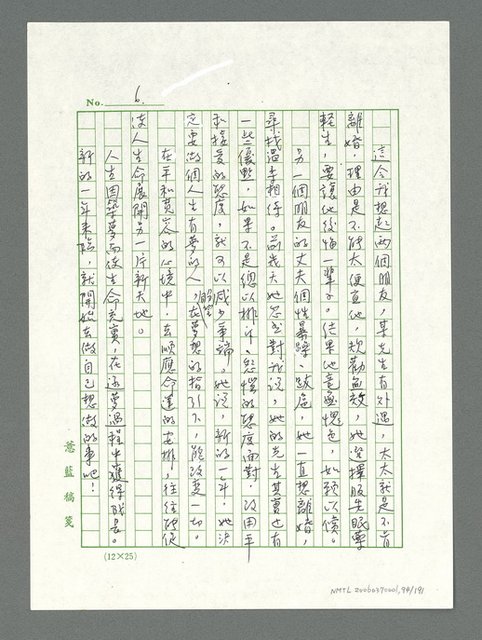 No. 6.
這令我想起兩個朋友，某先生有外遇，太太就是不肯
離婚，理由是不能太便宜他，規勸無效，她選擇服安眠藥
輕生，要讓他後悔一輩子。結果他毫無愧色，如願以償。
另一個朋友的丈夫個性暴躁、跋扈，她一直想離婚，
尋找溫柔相待。前幾天她忽然對我說，她的先生其實也有
一些優點，如果不是總以排斥、怨懟的態度面對，改用平
和接受的態度，就可以減少爭論。她說，新的一年，她決
定要做個人生有夢的人，盼望在夢想的指引下，能改變一切。
在平和寬容的心境中，去順應命運的安排，往往硬使
使人生命展開另一片新天地。
人生因築夢而使生命充實，在逐夢過程中獲得成長。
新的一年來臨，就開始去做自己想做的事吧！
慧藍稿箋
(12×25)
NMTL 20060370001,94/191